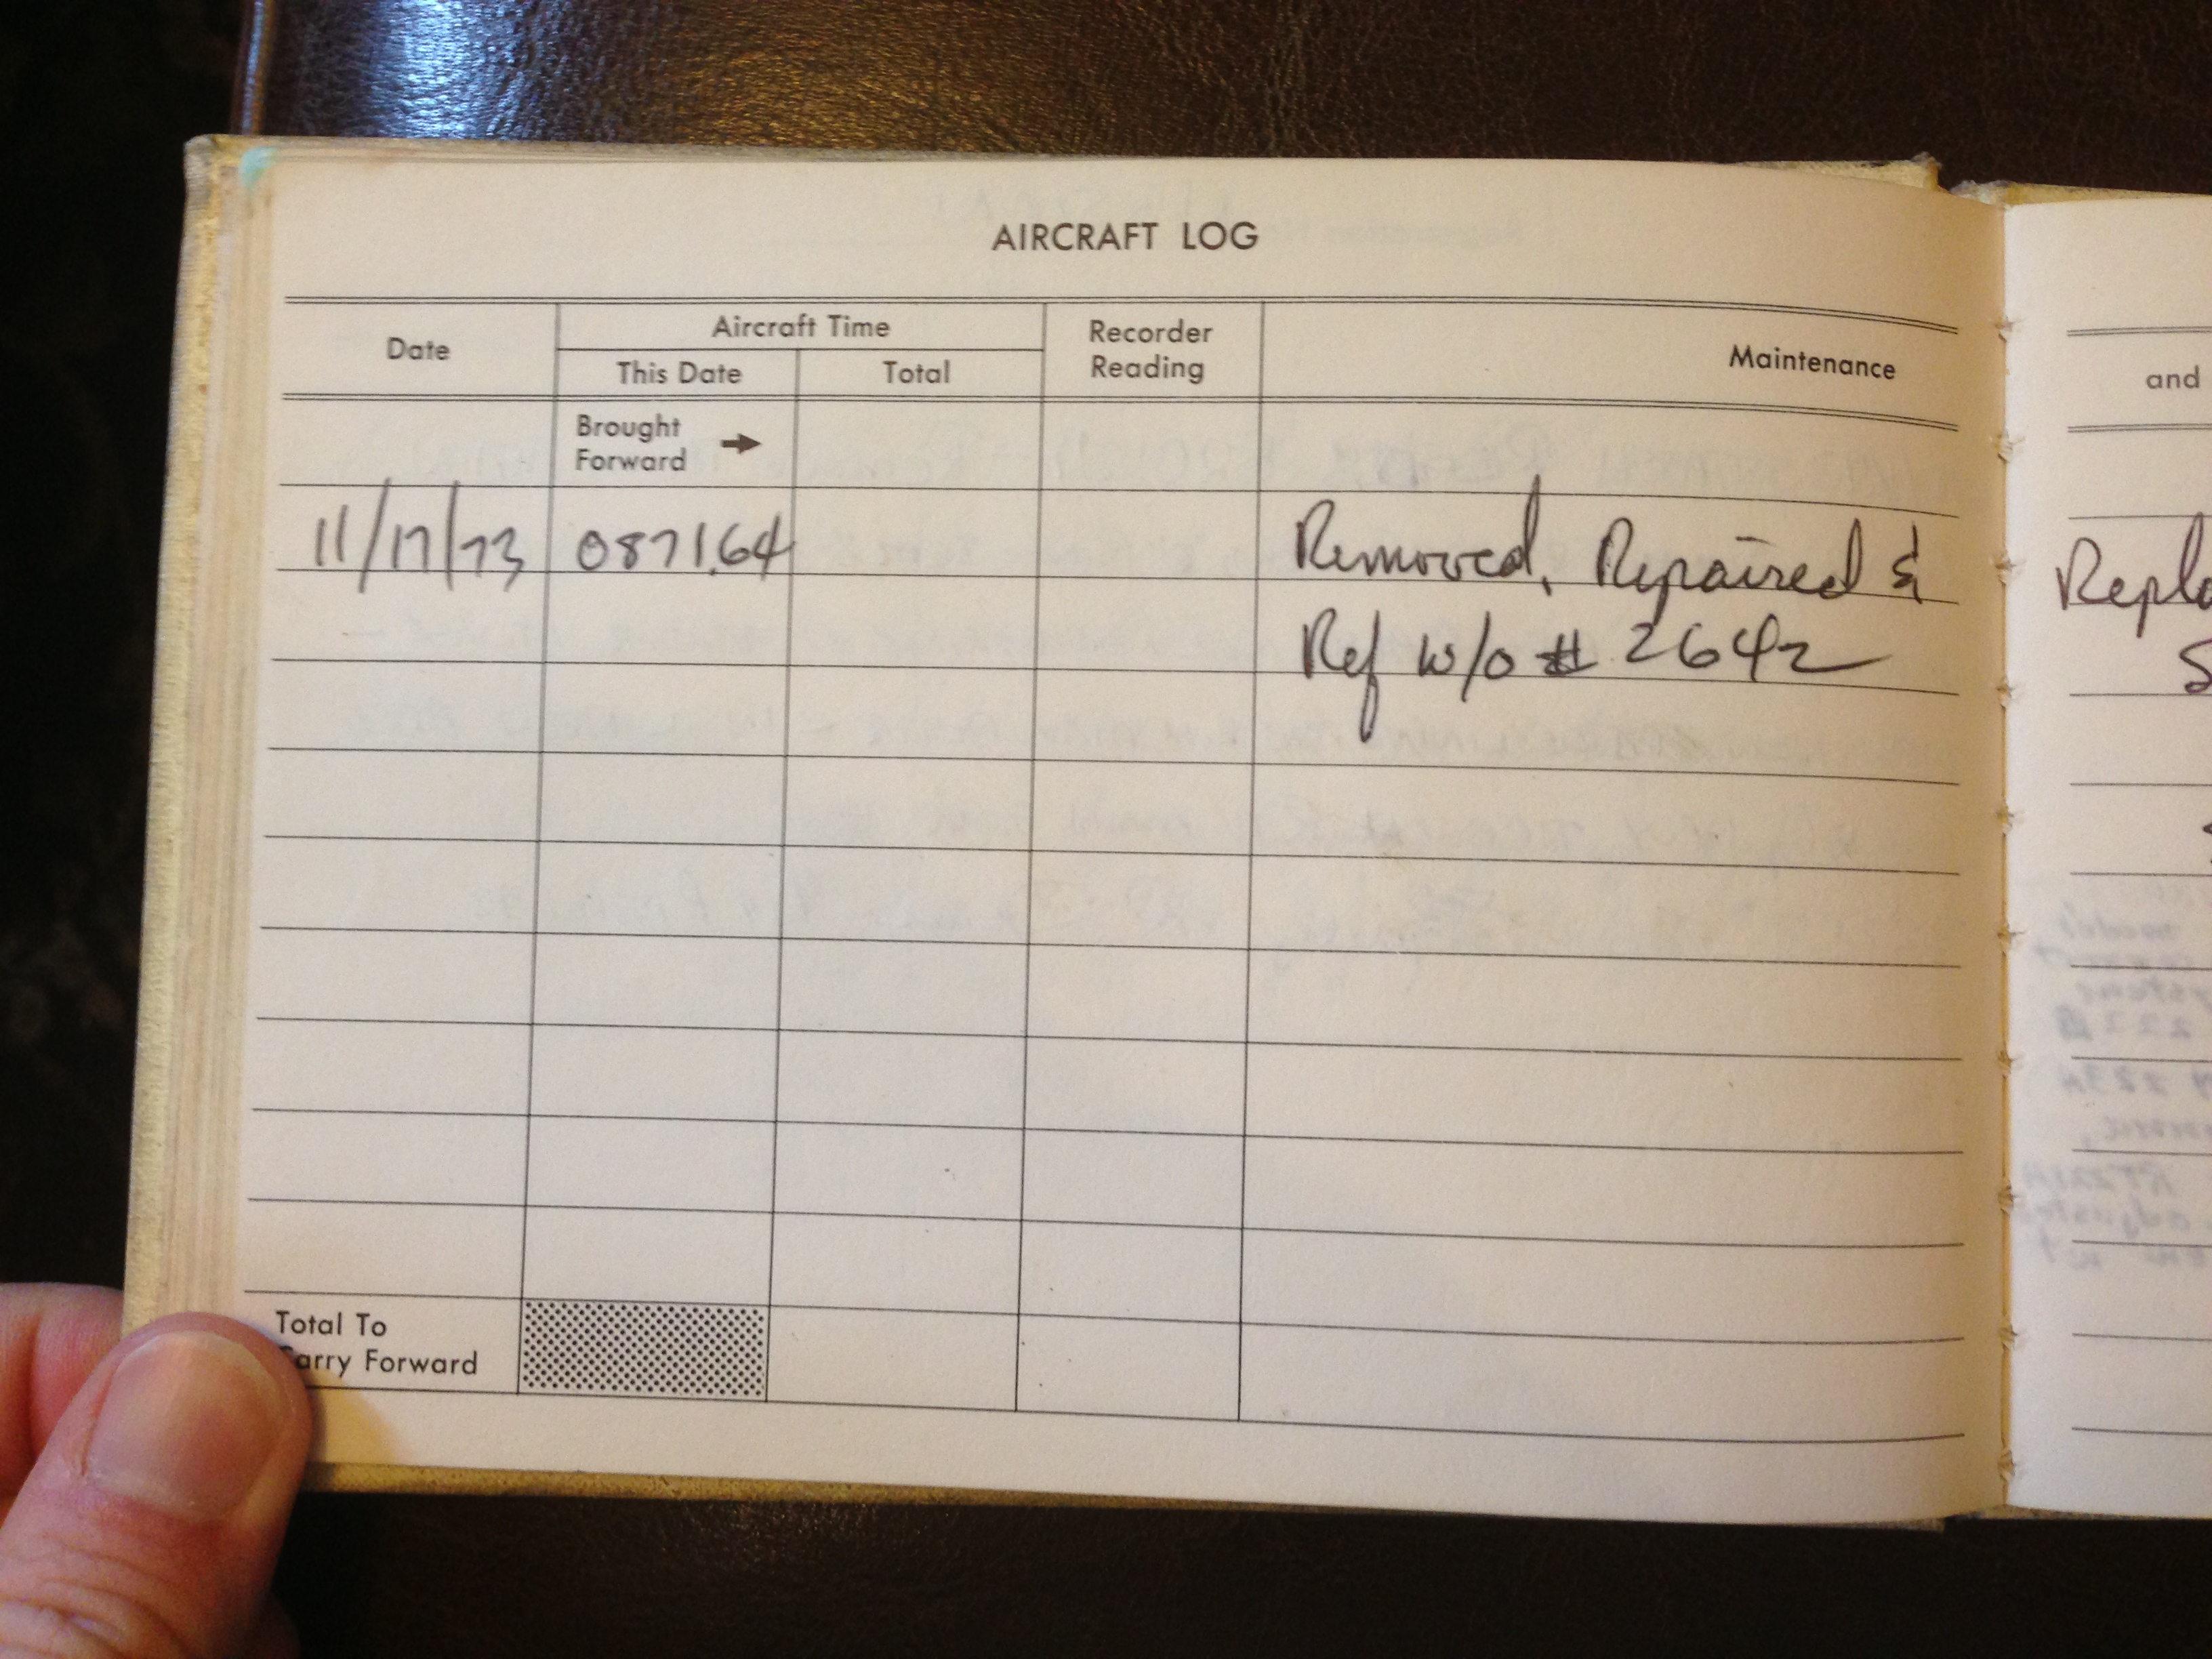 AIRCRAFT LOG
Date
Aircraft Time
This Date
Total
Recorder
Reading
Maintenance
and
Brought
Forward
11/17/73 0871.64 Removed, Repaired & Repla
Ref w/o # 2642 S
Total To
Carry Forward